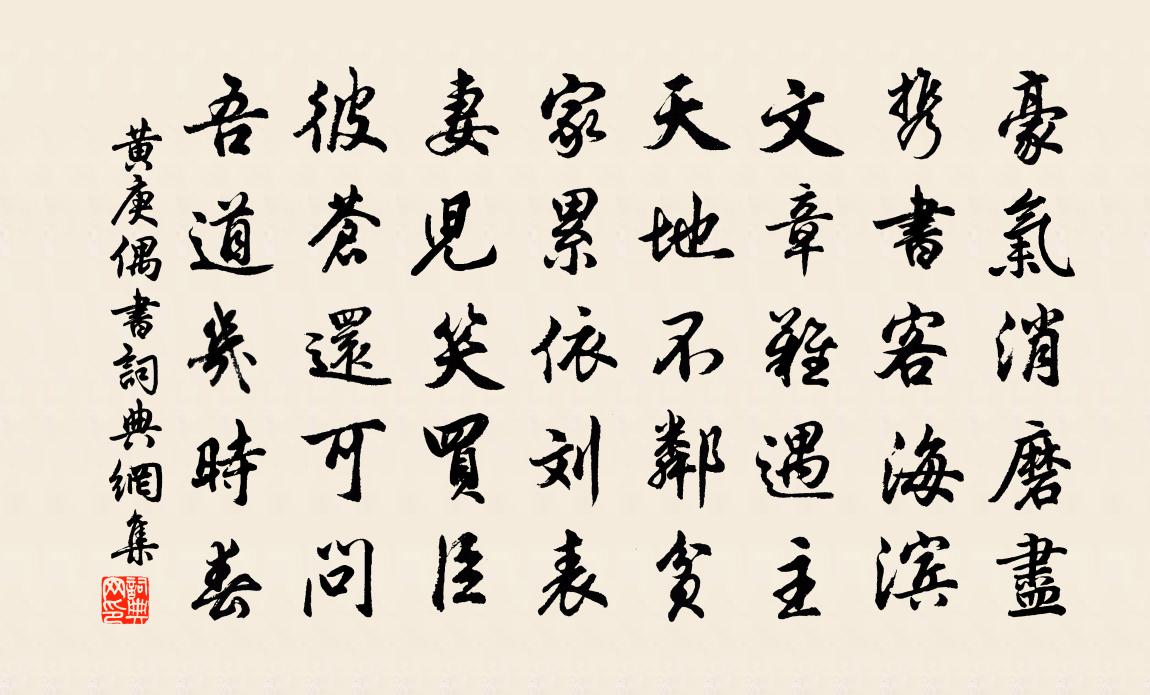 豪氣消磨盡
携書客海滨
文章難遇主
天地不鄰貧
家累依刘表
妻児笑買臣
彼蒼還可問
吾道幾時春
黄庚偶書詞典網集
詞典网印